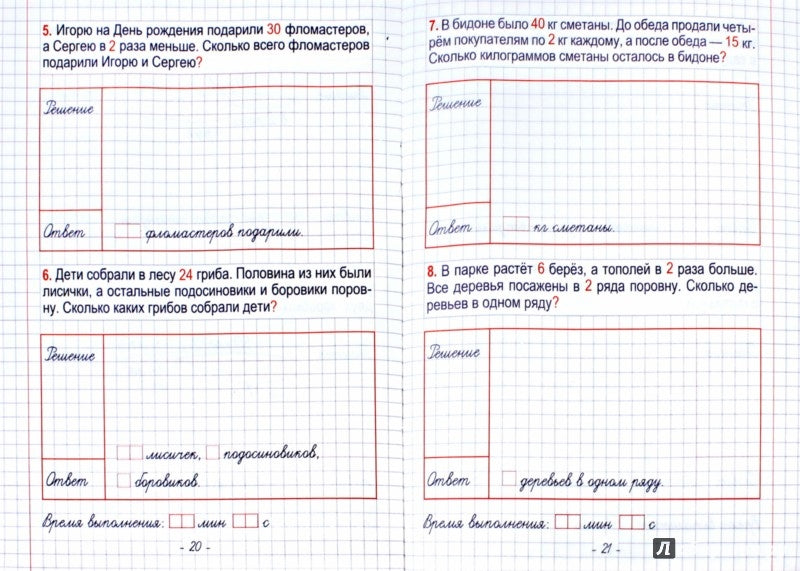 5. Игорю на День рождения подарили 30 фломастеров,
а Сергею в 2 раза меньше. Сколько всего фломастеров
подарили Игорю и Сергею?
Решение
Ответ
фломастеров подарили.
6. Дети собрали в лесу 24 гриба. Половина из них были
лисички, а остальные подосиновики и боровики поров-
ну. Сколько каких грибов собрали дети?
Решение
лисичек, подосиновиков,
Ответ
боровиков.
Время выполнения: мин с
- 20 -
7. В бидоне было 40 кг сметаны. До обеда продали четы-
рём покупателям по 2 кг каждому, а после обеда — 15 кг.
Сколько килограммов сметаны осталось в бидоне?
Решение
Ответ
кг сметаны.
8. В парке растёт 6 берёз, а тополей в 2 раза больше.
Все деревья посажены в 2 ряда поровну. Сколько де-
ревьев в одном ряду?
Решение
Ответ
деревьев в одном ряду.
Время выполнения: мин с
- 21 -
Л